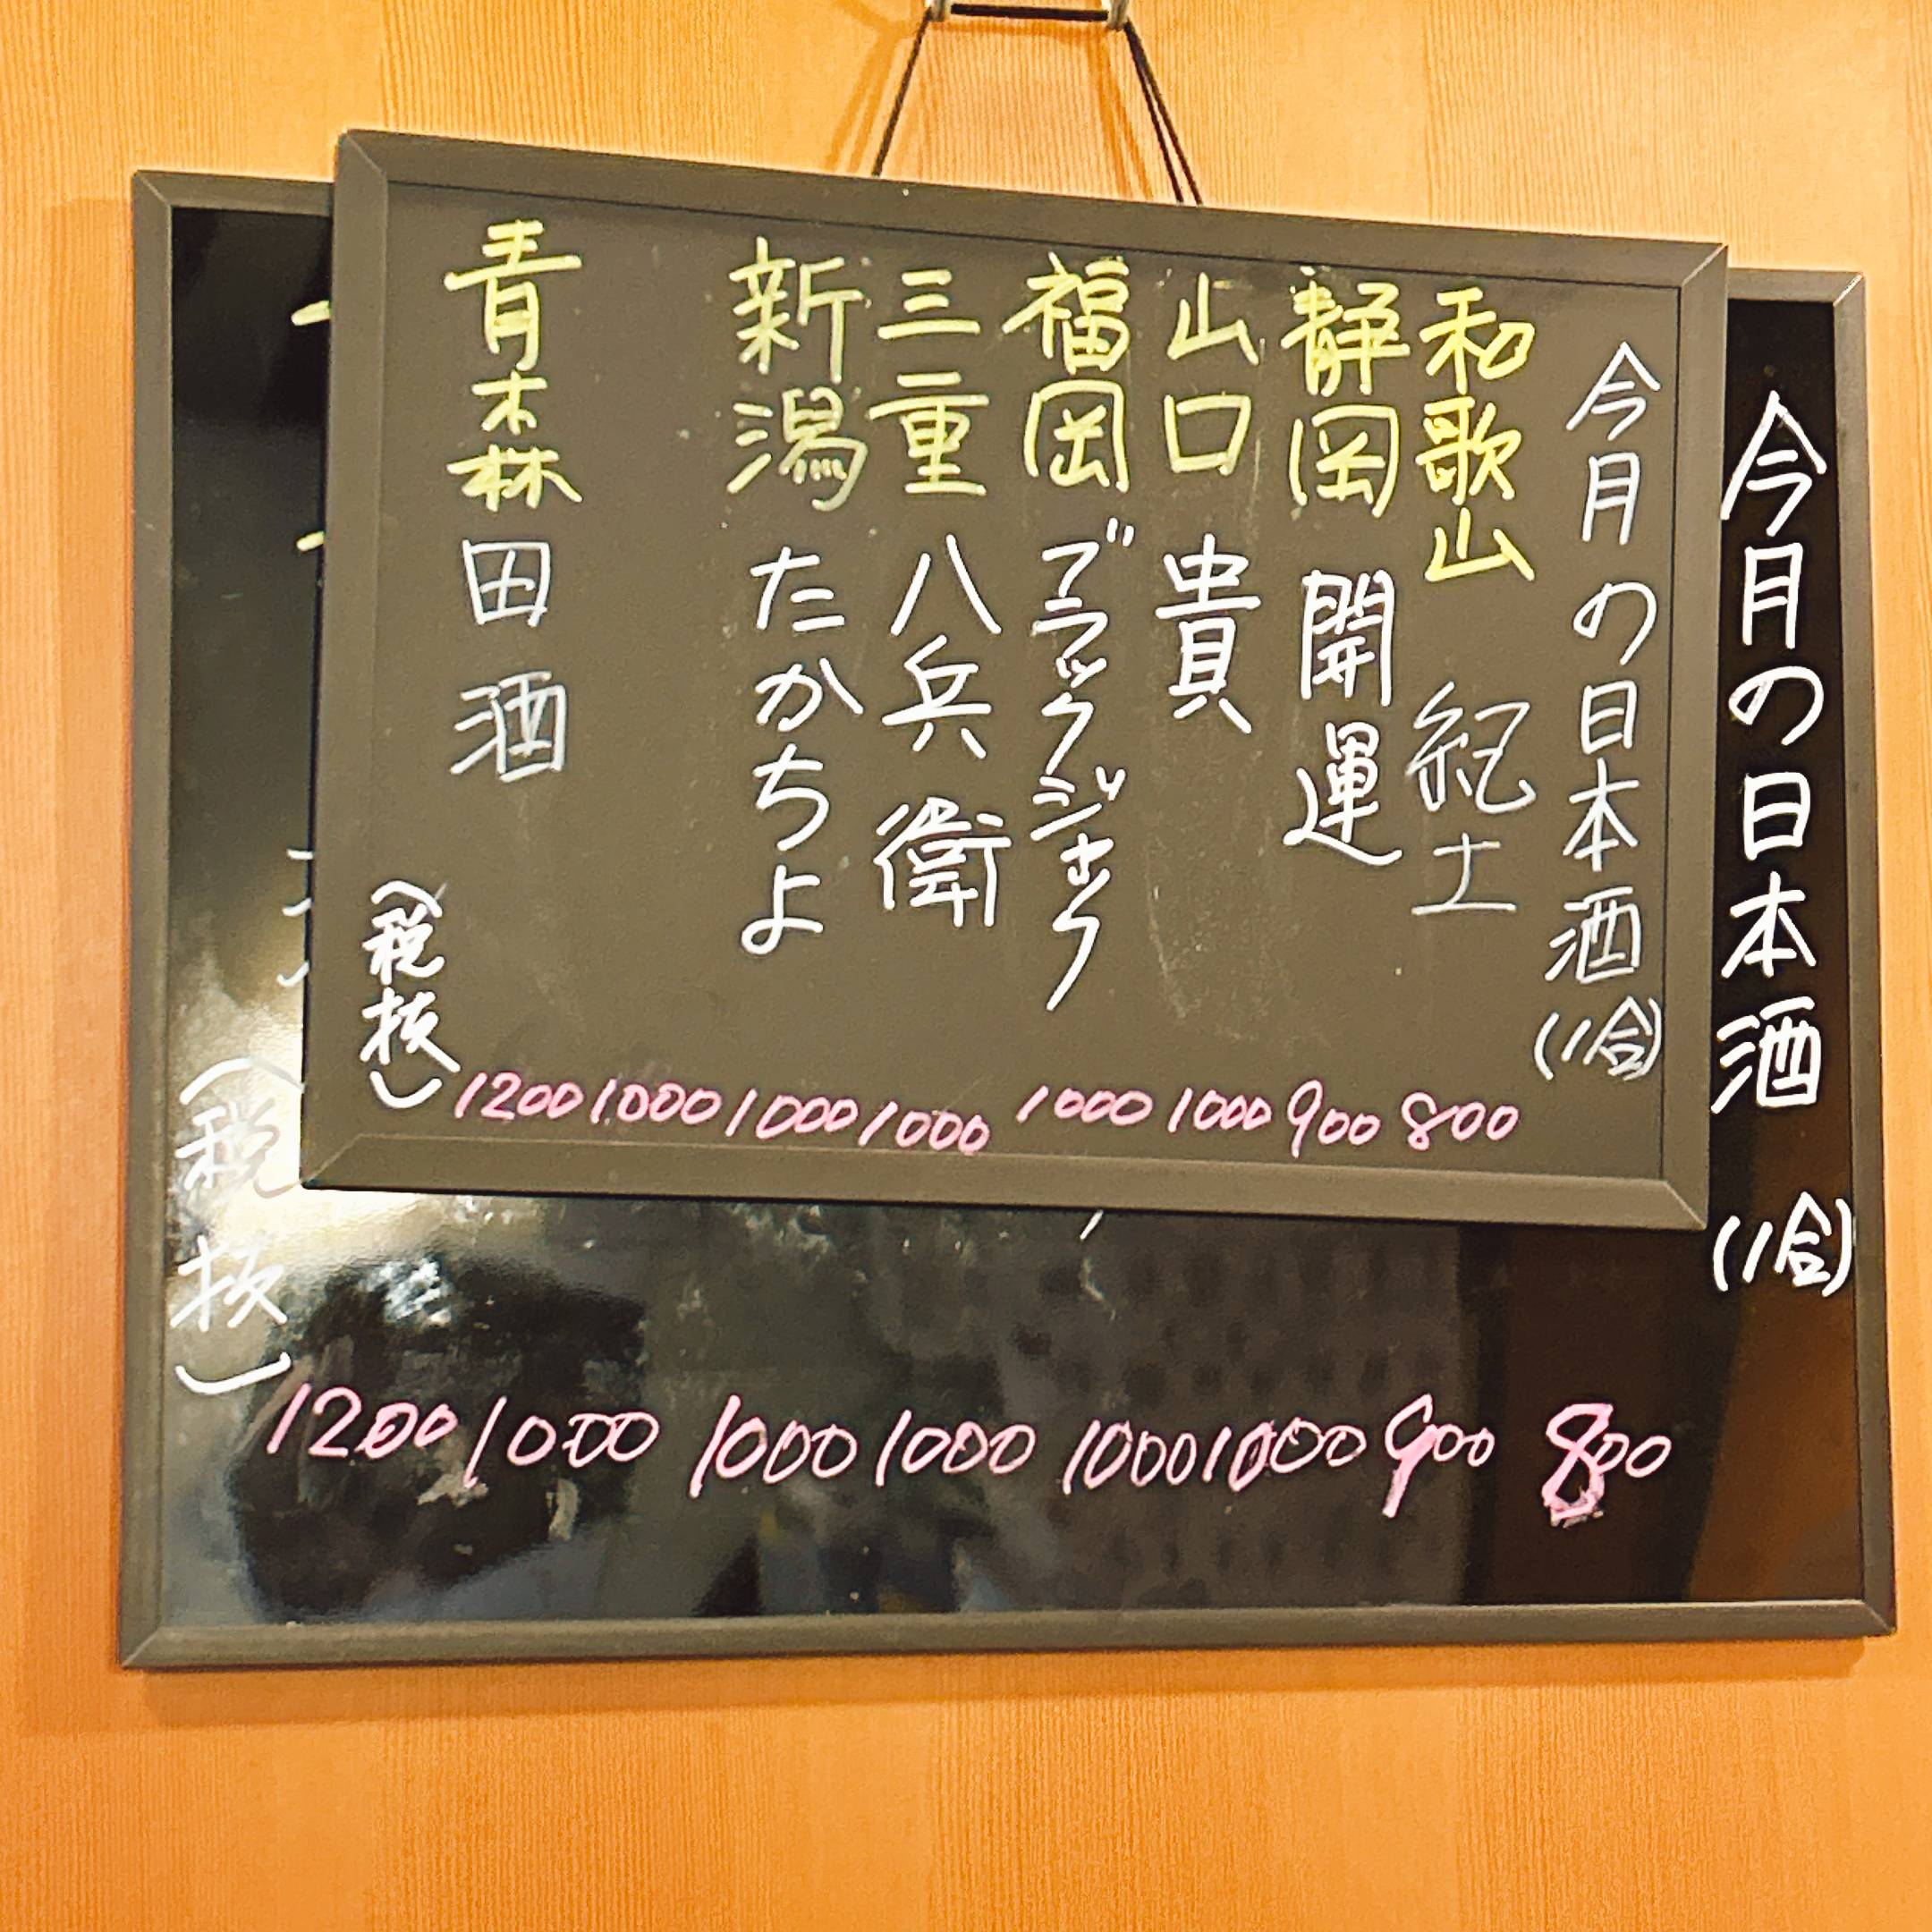 今月の日本酒(1合)
和歌山 紀土 800
静岡 開運 900
山口 貴 1000
福岡 ブラックジャック 1000
三重 八兵衛 1000
新潟 たかちよ 1000
1000
青森 田酒 1200
(税抜)
今月の日本酒 (1合)
800
900
1000
1000
1000
1000
1000
1200
(税抜)